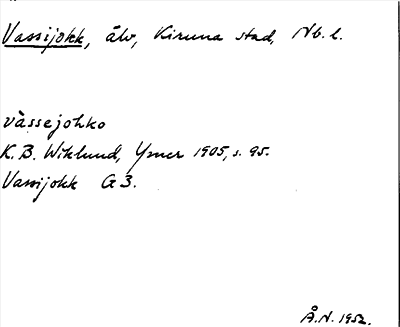 Vassijokk, älv, Kiruna stad, Nb. l.
vàssejohko
K.B. Wiklund, Ymer 1905, s. 95.
Vassijokk G3.
Å.N. 1952.